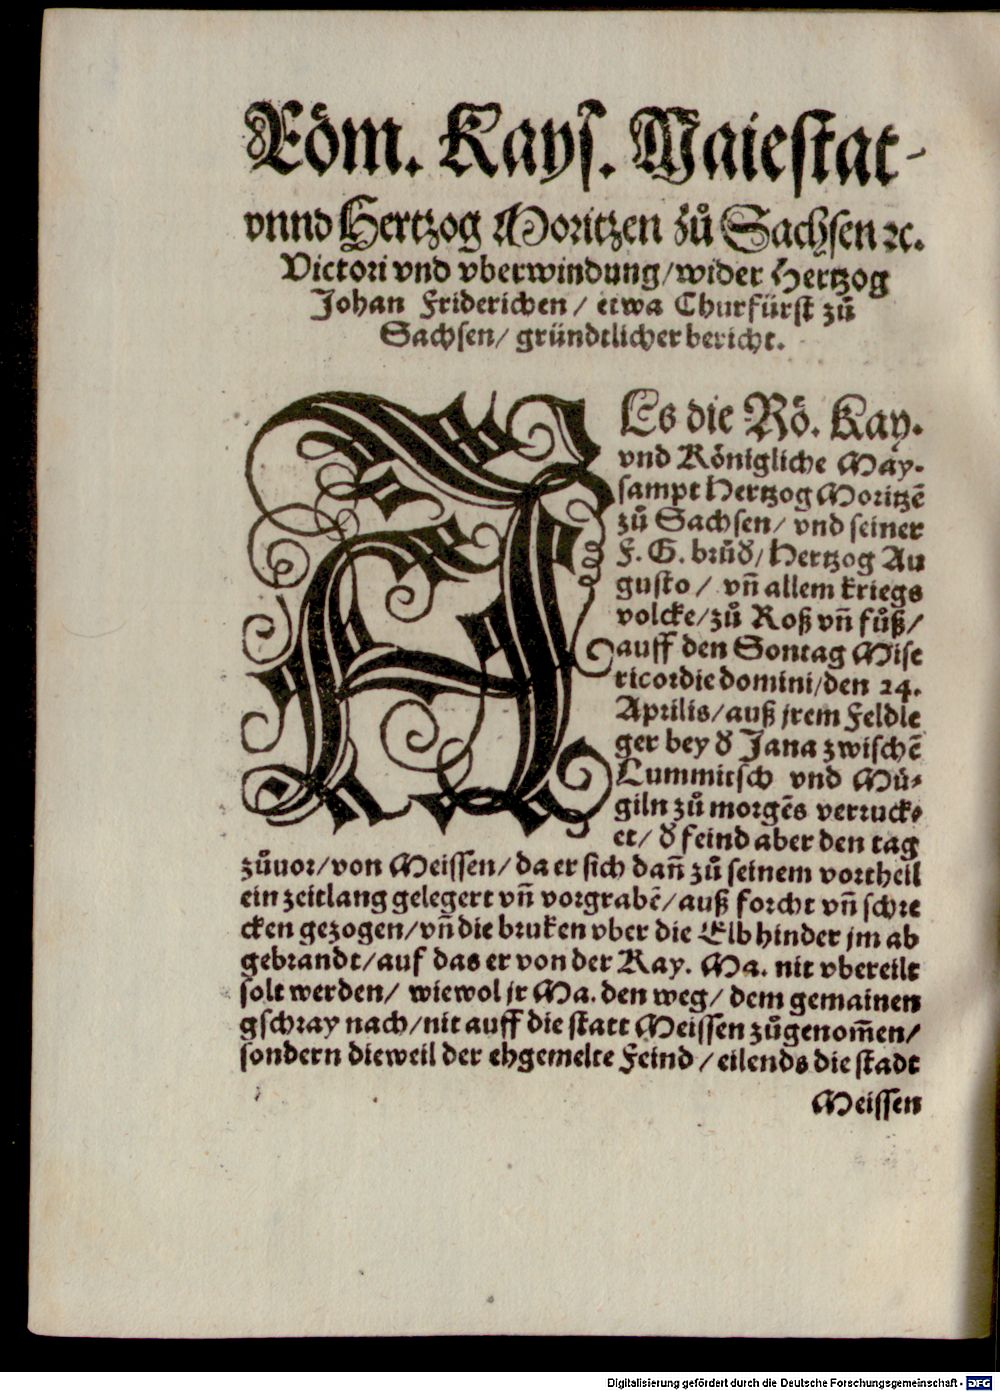 Röm. Kays. Maiestat-
vnnd Hertzog Moritzen zů Sachsen ⁊c.
Victori vnd vberwindung/wider Hertzog
Johan Friderichen/ etwa Churfürst zů
Sachsen/ gründtlicher bericht.
ALs die Rö. Kay.
vnd Königliche May.
sampt Hertzog Moritzẽ
zů Sachsen/ vnd seiner
F. G. brůd/ Hertzog Au
gusto/ vñ allem kriegs
volcke/zů Roß vñ fůß/
auff den Sontag Mise
ricordie domini/den 24.
Aprilis/auß jrem Feldle
ger bey d Jana zwischẽ
Lummitsch vnd Mü-
giln zů morgẽs verruck-
et/ d feind aber den tag
zůuor/von Meissen/da er sich dañ zů seinem vortheil
ein zeitlang gelegert vñ vorgrabẽ/auß forcht vñ schre
cken gezogen/vñ die bruken vber die Elb hinder jm ab
gebrandt/auf das er von der Kay. Ma. nit vbereilt
solt werden/ wiewol jr Ma. den weg/ dem gemainen
gschray nach/nit auff die statt Meissen zůgenom̃en/
sondern dieweil der ehgemelte Feind/eilends die stadt
Meissen
Digitalisierung gefördert durch die Deutsche Forschungsgemeinschaft - DFG